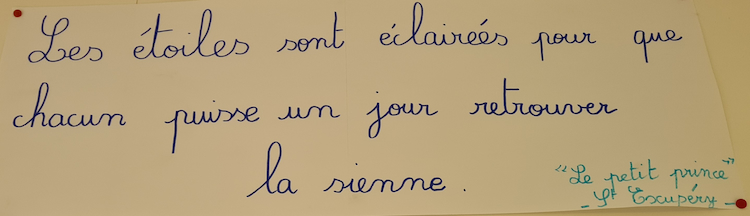 Les étoiles sont éclaireés pour que
chacun puisse un jour retrouver
la sienne.
"Le petit prince"
- St Excupéry -